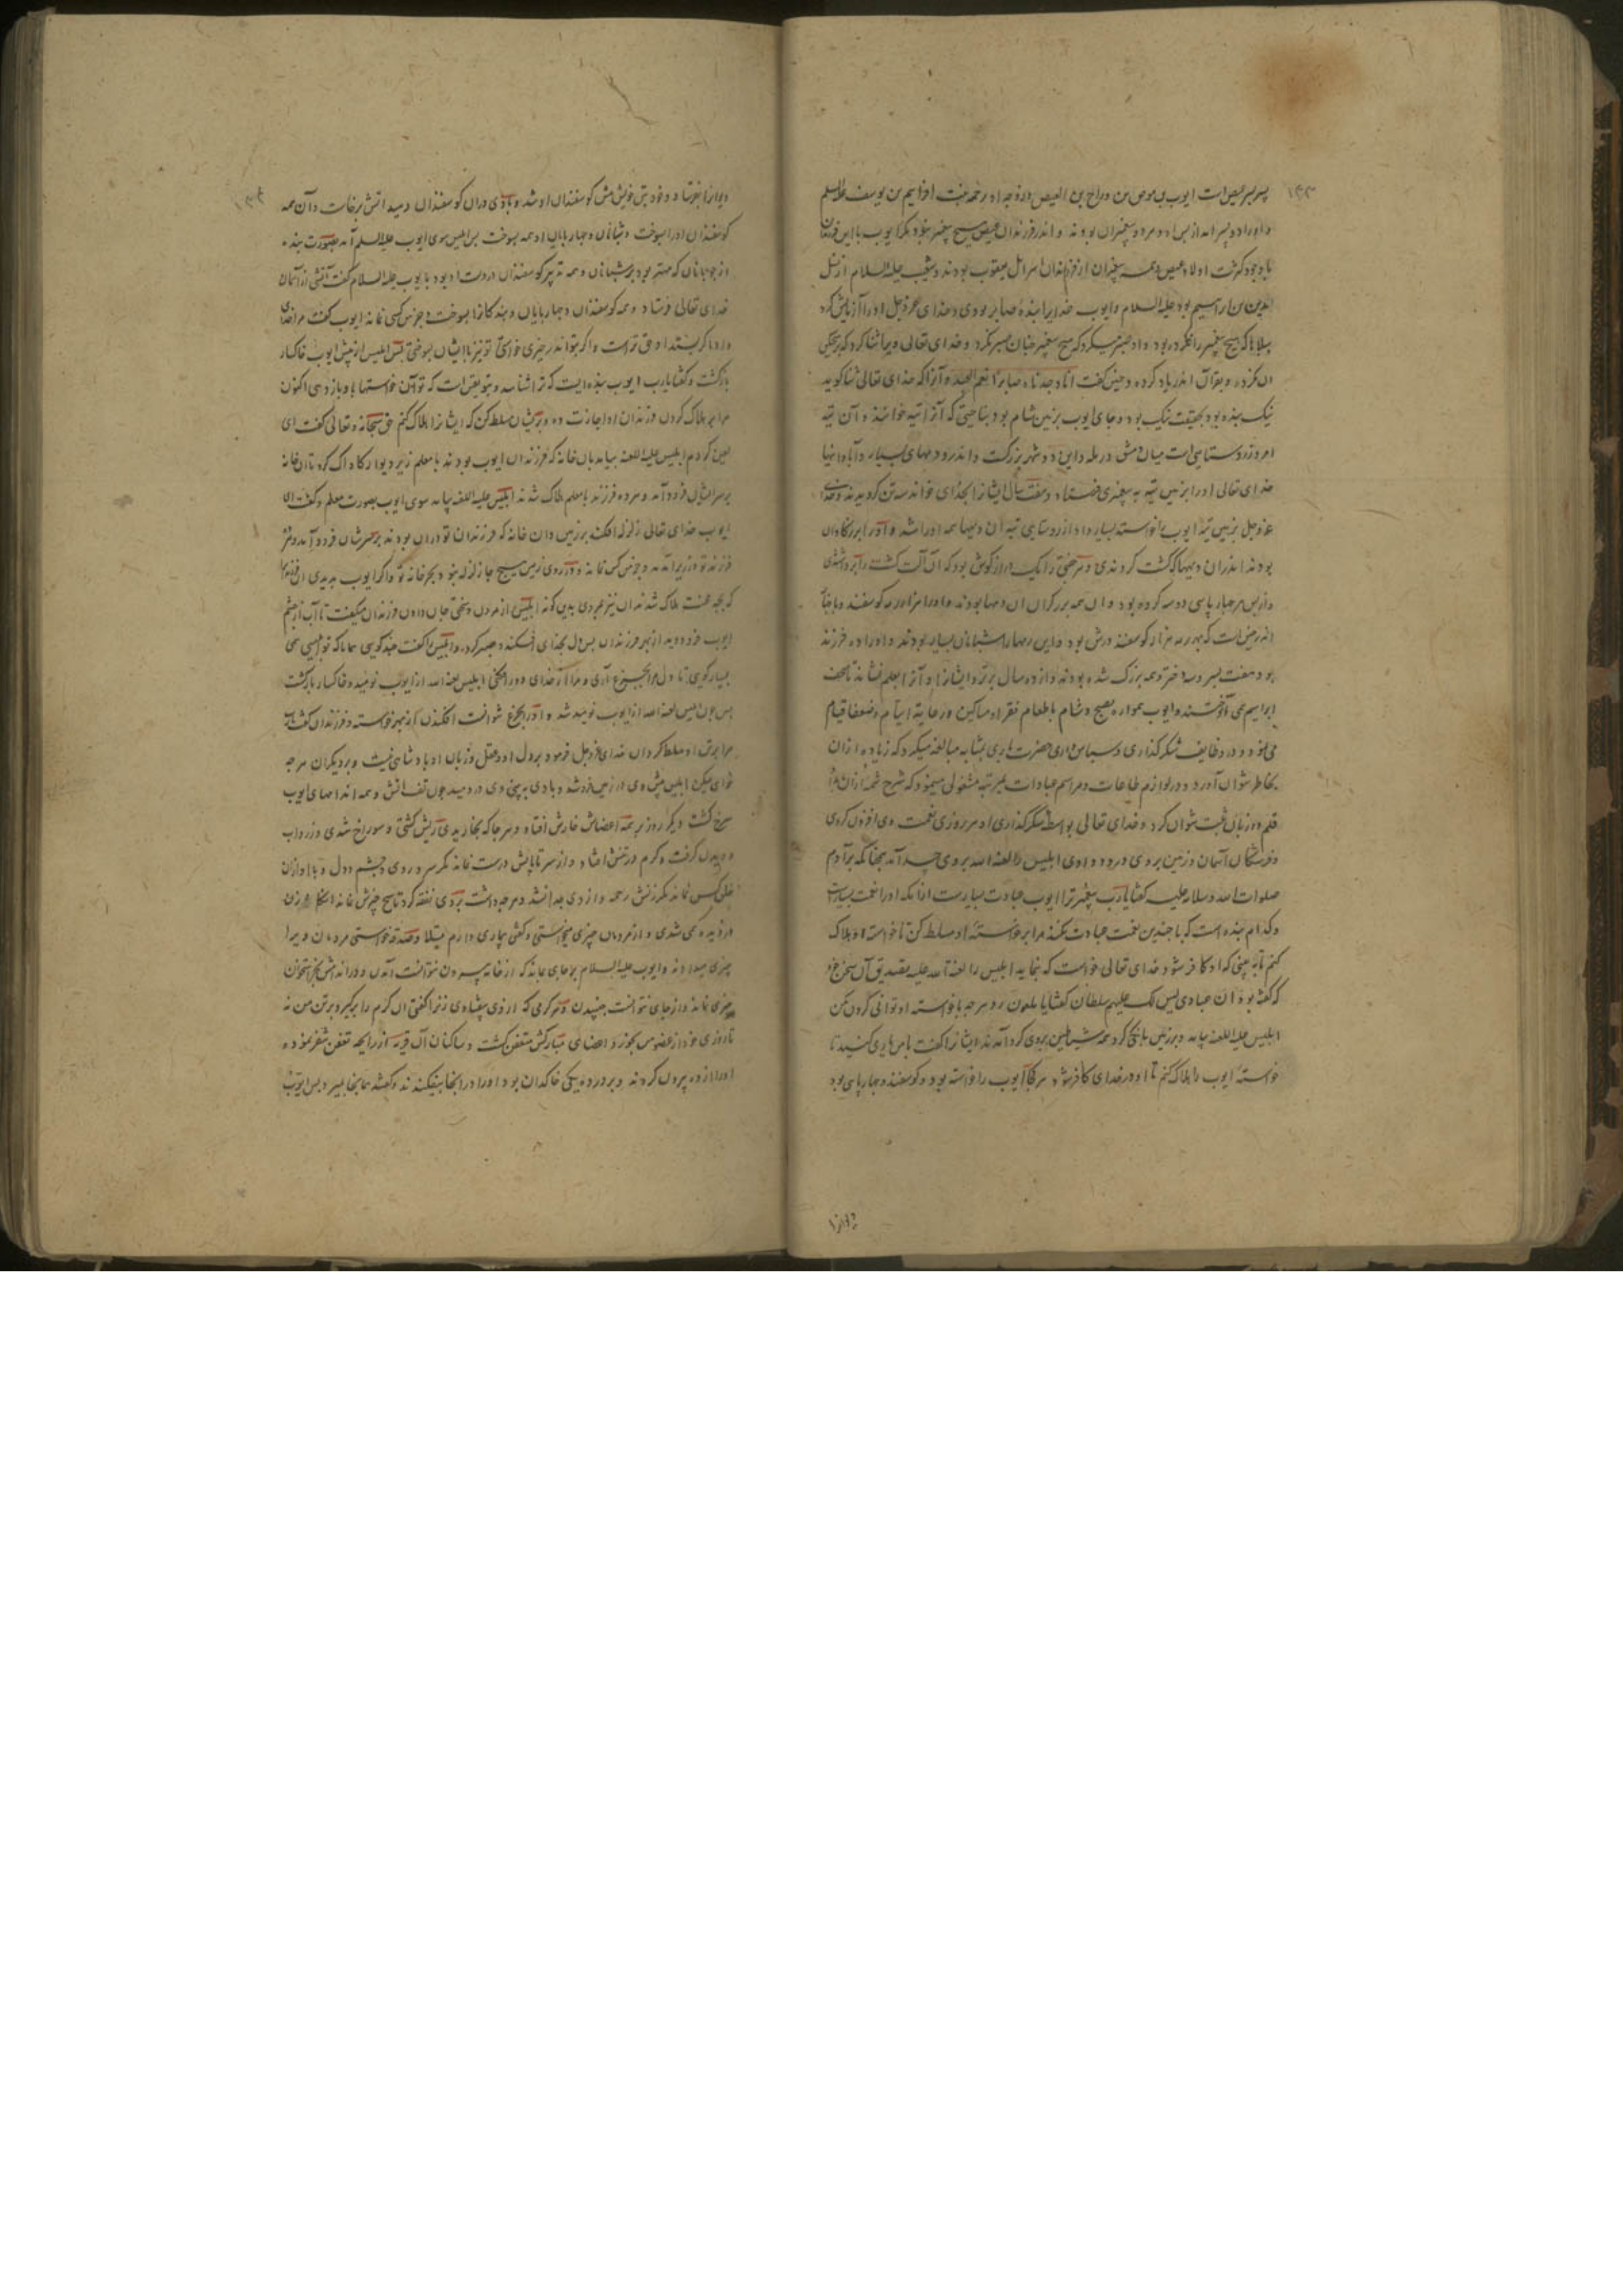 ۱۳۳
پسر پسر عیص است ایوب بن موص بن رراح بن العیص و زوجه او رحمه بنت افراییم بن یوسف علیه السلم
و او را دو پسر آمد از پس او و هر دو پیغمبران بودند و اندر فرزندان عیص هیچ پیغمبر نبود مگر ایوب با این فرزندان
با وجود کثرت اولاد عیص و همه پیغمبران از فرزندان اسرائل یعقوب بودند و شعیب علیه السلام از نسل
مدین بن ابراهیم بود علیه السلام و ایوب خدایرا بنده صابر بودی و خدای عزوجل او را آزمایش کرد
ببلاها که هیچ پیغمبر را نکرده بود و او صبر میکرد که هیچ پیغمبر چنان صبر نکرد و خدای تعالی ویرا ثنا کرد که بر هیچکس
آن نکرد و بقرآن اندر یاد کرد و چنین گفت انا وجدناه صابرا نعم العبد و آنرا که خدای تعالی ثنا گوید
نیک بنده بود بحقیقت نیک بود و جای ایوب بزمین شام بود بناحیتی که آنرا بثنیه خوانند و آن بثنیه
امروز روستایی است میان دمشق و رمله و این دو شهر بزرگست و اندرو دیهای بسیار و آبادانیها
خدای تعالی او را بزمین بثنیه به پیغمبری فرستاد و هفت سال ایشانرا بخدای خواند سه تن گرویدند و خدای
عزوجل بزمین بثنیه ایوب را خواسته بسیار داد از روستایی بثنیه آن دیهها همه او را شد و او را بزرگاوان
بودند اندران دیهها که کشت کردندی و هر جفتی را یک درازگوش بود که آن آلت کشت را برداشتی
و از پس هر چهارپایی دو سه کره بود و آن همه بزرگران آن دیهها بودند و او را هزار رمه گوسفند و باخبار
اندر چنین است که بهر رمه هزار گوسفند درش بود و این رمهها را شبانان بسیار بودند و او را ده فرزند
بود هفت پسر و سه دختر و همه بزرگ شده بودند و از ده سال برتر و ایشانرا و آنرا بعلم نشاند تا صحف
ابراهیم می آموختند و ایوب همواره بصبح و شام باطعام فقرا و مساکین و رعایة ایتام و ضعفا قیام
می نمود و در وظایف شکرگذاری و سپاس داری حضرت باری بمثابه مبالغه میکرد که زیاده از آن
بخاطر نتوان آورد و در لوازم طاعات و مراسم عبادات بمرتبه مشغولی مینمود که شرح شمه از آن را
قلم و زبان ثبت نتوان کرد و خدای تعالی بواسطه شکرگذاری او هر روزی نعمت وی افزون کردی
و فرشتگان آسمان و زمین بر وی درود دادی ابلیس را لعنه الله بر وی حسد آمد بچنانکه بر آدم
صلوات الله و سلامه علیه گفتا یا رب پیغمبر ترا ایوب عبادت بسیارست از آنکه او را نعمت بسیارست
و کدام بنده است که با چندین نعمت عبادت نکند مرا بر خواسته او مسلط کن تا خواسته او هلاک
کنم تا به بینی که او کافر شود خدای تعالی خواست که بنماید ابلیس را لعنة الله علیه بتصدیق آن سخن خود
که گفته بود ان عبادی لیس لک علیهم سلطان گفتا یا ملعون رو هر چه با خواسته او توانی کردن بکن
ابلیس علیه اللعنه بیامد و بر زمین بانگی کرد همه شیاطین بروی گرد آمدند ایشانرا گفت با من یاری کنید تا
خواسته ایوب را هلاک کنم تا او در خدای کافر شود هر کجا ایوب را خواسته بود و گوسفند و چهارپای بود
دیوانرا
۱۳۴
دیوانرا بفرستاد و خود بتن خویش پیش گوسفندان او شد و بادی در آن گوسفندان دمید آتش برخاست و آن همه
گوسفندان او را بسوخت و شبانان و چهارپایان او همه بسوخت پس ابلیس سوی ایوب علیه السلم آمد بصورت بنده
از چوپانان که مهتر بود بر شبانان و همه تدبیر گوسفندان در دست او بود با ایوب علیه السلام گفت آتشی از آسمان
خدای تعالی فرستاد و همه گوسفندان و چهارپایان و بندگانرا بسوخت و جز من کسی نماند ایوب گفت مر خدای
داد و اگر بستد او حق تراست و اگر بتو اندر چیزی خواستی تو نیز با ایشان بسوختی پس ابلیس از پیش ایوب خاکسار
بازگشت و گفتا یا رب ایوب بنده ایست که ترا شناسد و بتو یقین است که تو آن خواستها با وی باز دهی اکنون
مرا بر هلاک کردن فرزندان او اجازت ده و بر ایشان مسلط کن که ایشانرا هلاک کنم حق سبحانه و تعالی گفت ای
لعین کردم ابلیس علیه اللعنه بیامد بآن خانه که فرزندان ایوب بودند با معلم زیر دیوار کاواک کرد تا آن خانه
بر سر ایشان فرود آمد و هر ده فرزند با معلم هلاک شدند ابلیس علیه اللعنه بیامد سوی ایوب بصورت معلم و گفت ای
ایوب خدای تعالی زلزله افکند بر زمین و آن خانه که فرزندان تو در آن بودند بر سرشان فرود آمد و هر
فرزند تو در زیر آمدند و جز من کس نماند و در روی زمین هیچ جا زلزله نبود بجز خانه تو و اگر ایوب بدیدی آن فرزندان
که بچه محنت هلاک شدند آن نیز بمردی بدین گونه ابلیس از مردن و سختی جان دادن فرزندان میگفت تا آب از چشم
ایوب فرو دوید از بهر فرزندان پس دل بخدای افکند و صبر کرد و ابلیس را گفت چند گویی همانا که تو ابلیسی همی
بسیار گویی تا دل مرا بجزع آری و مرا از خدای دور افکنی ابلیس لعنه الله از ایوب نومید و خاکسار بازگشت
پس چون ابلیس لعنه الله از ایوب نومید شد و او را بجزع نتوانست افکندن از بهر خواسته و فرزندان گفت یا رب
مرا بر تن او مسلط گردان خدای عزوجل فرمود بر دل او و عقل و زبان او پادشاهی نیست و بر دیگران هر چه
خواهی بکن ابلیس پیش وی در زمین فرو شد و بادی به بینی وی در دمید چون تف آتش و همه اندامهای ایوب
سرخ گشت دیگر روز بر همه اعضاش خارش افتاد و هر جا که بخاریدی ریش گشتی و سوراخ شدی و زرداب
دویدن گرفت و کرم در تنش افتاد و از سر تا پایش درست نماند مگر سر و روی و چشم و دل و با او از آن
خلق کس نماند مگر زنش رحمه و از وی جدا نشد و هر چه داشت بر وی نفقه کرد تا هیچ چیزش نماند آنگاه زن
در دیه همی شدی و از مردمان چیزی میخواستی و گفتی بیماری دارم مبتلا و صدقه خواستی مردمان ویرا
چیزی میدادند و ایوب علیه السلام بر جای بماند که از خانه بیرون نتوانست آمدن و در اندامش بجز استخوان
چیزی نماند و از جای نتوانست جنبیدن و هر کرمی که از وی بیفتادی زنرا گفتی آن کرم را برگیر و بر تن من نه
تا روزی خود از عضو من بخورد و اعضای مبارکش متعفن گشت و ساکنان آن قریه از رایحه تعفن متنفر نموده
او را از ده بیرون کردند و بر در ده یکی خاکدان بود او را در آنجا بیفکندند و گفتند همانجا بمیر و پس ایوب